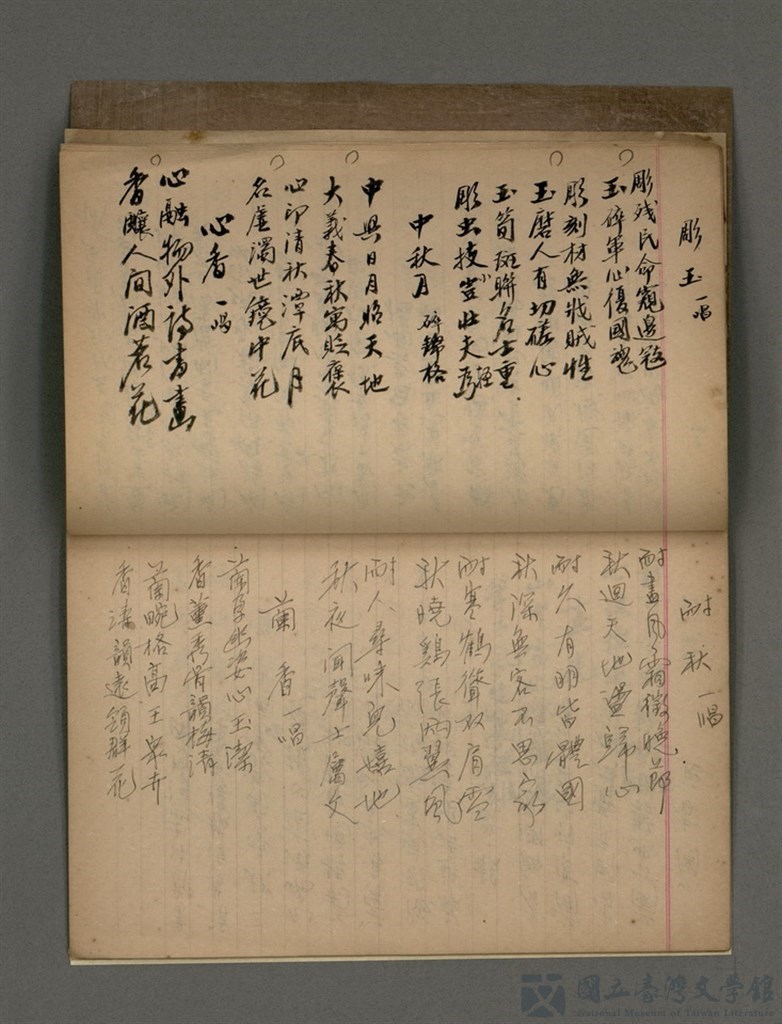 彫玉 一唱
彫殘民命窺邊寇
玉碎軍心復國魂
彫刻材無戕賊性
玉磨人有切磋心
玉筍班聯名士重
彫虫小技豈壯夫輕
中秋月 碎錦格
中興日月昭天地
大義春秋寓貶褒
心印清秋潭底月
名虛濁世鏡中花
心香 一唱
心融物外詩書畫
香釀人间酒茗花
耐秋 一唱
耐盡風霜徵晚節
秋迴天地還歸心
耐久有朋皆體國
秋深無客不思家
耐寒鶴聳双肩雪
秋曉鷄張兩翼風
耐人尋味兒嬉地
秋夜闻聲士屬文
蘭香 一唱
蘭孕幽姿心玉潔
香薰秀骨韻梅清
蘭畹格高王衆卉
香清韻遠領群花
國立臺灣文學館
National Museum of Taiwan Literature